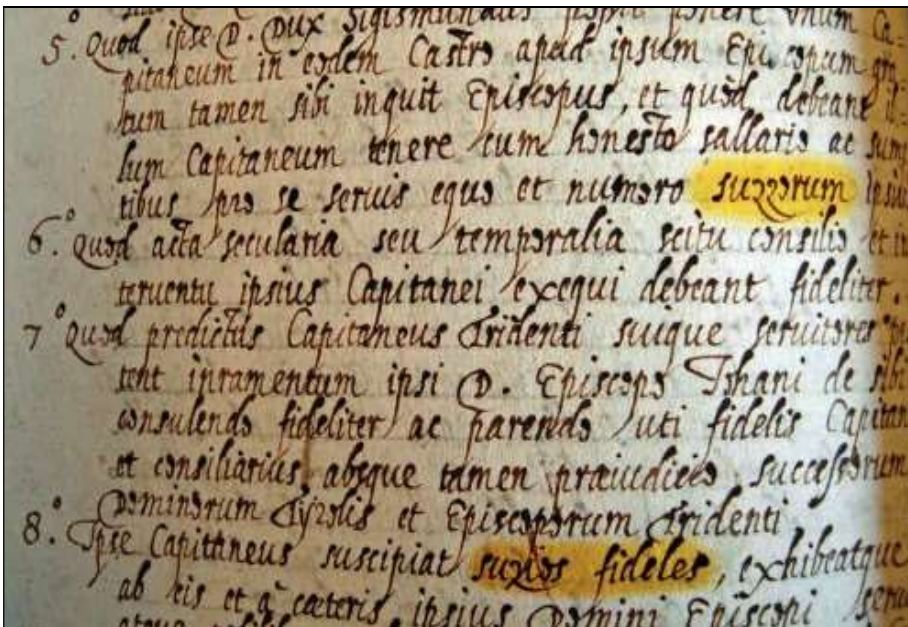 5.° Quod ipse D. Dux Sigismundus ponere unum Ca-
pitaneum in eodem Castro apud ipsum Episcopum gra
tum tamen sibi inquit Episcopus, et quòd debeant il-
lum Capitaneum tenere cum honesto sallario ac sump
tibus pro se servis equo et numero suzzorum ipsius
6.° Quod acta secularia seu temporalia scitu consilio et in
terventu ipsius Capitanei exequi debeant fideliter.
7° Quod predictus Capitaneus Tridenti suique servitores
tent iuramentum ipsi D. Episcopo Iohani de sibi
consulendo fideliter ac parendo uti fidelis Capitan
et consiliarius absque tamen præiudicio successorum
Dominorum Tyrolis et Episcoporum Tridenti
8.° Ipse Capittaneus suscipiat fideles, exhibeatque
ab eis et à cæteris ipsius Domini Episcopi